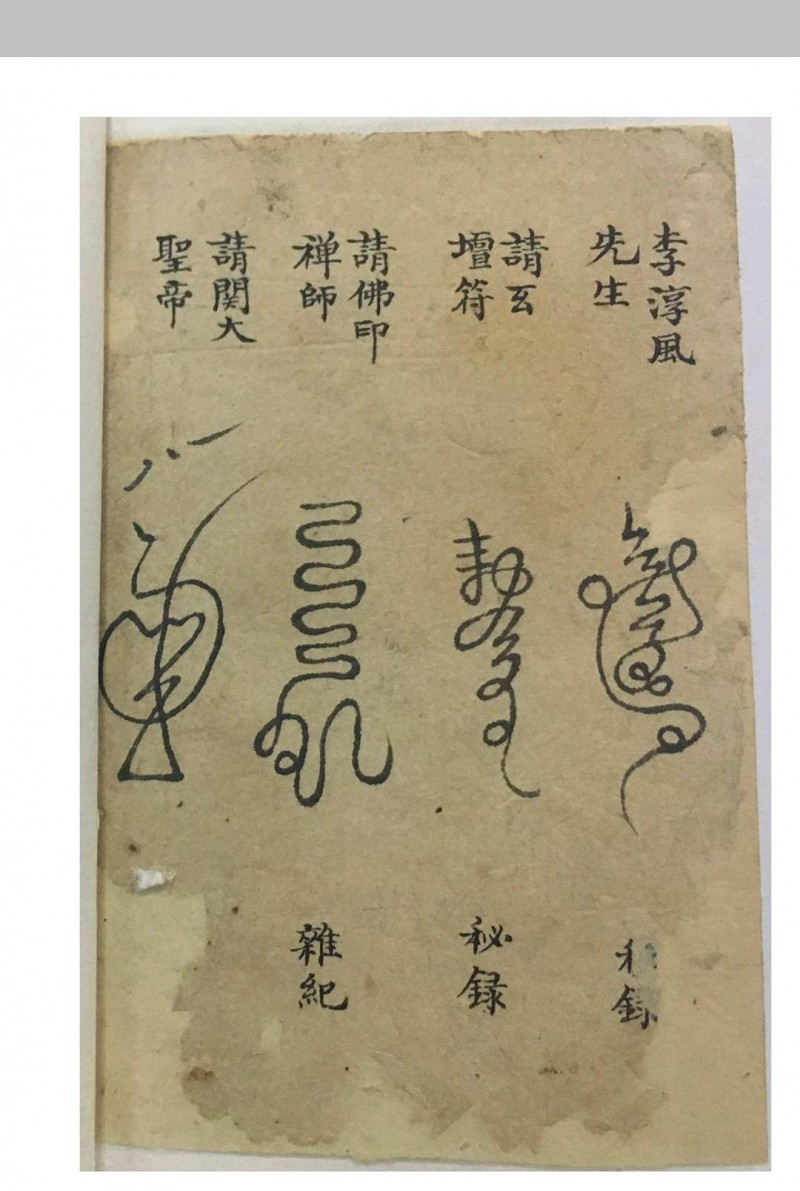 李淳風
先生
請玄
壇符
請佛印
禅師
請関大
聖帝
録
秘録
雜紀